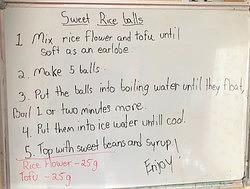 Sweet Rice balls
1 Mix rice flower and tofu until
soft as an earlobe
2. Make 5 balls.
3. Put the balls into boiling water until they float,
Boil 1 or two minutes more.
4. Put them into ice water untill cool.
5. Top with sweet beans and syrup!
Rice Flower - 25g
Tofu - 25g
Enjoy!